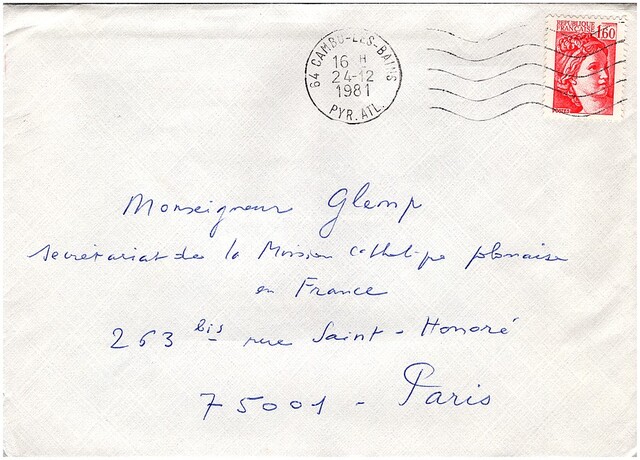 64 CAMBO-LES-BAINS
16 H
24-12
1981
PYR. ATL.
REPUBLIQUE
FRANÇAISE
1,60
POSTES
Monseigneur Glemp
secrétariat de la Mission Catholique polonaise
en France
263 bis rue Saint-Honoré
75001 - Paris